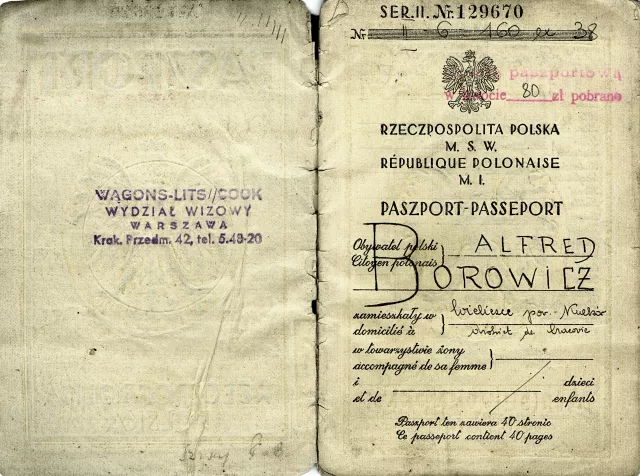 WAGONS-LITS//COOK
WYDZIAŁ WIZOWY
WARSZAWA
Krak. Przedm. 42, tel. 5.48-20
SER.II. Nr. 129670
Nr II - 6 - 160 ex 38
paszportową
80 zł pobrano
RZECZPOSPOLITA POLSKA
M. S. W.
RÉPUBLIQUE POLONAISE
M. I.
PASZPORT-PASSEPORT
Obywatel polski
Citoyen polonais
ALFRED
BOROWICZ
zamieszkały w
domicilié à
district de
w towarzystwie żony
accompagné de sa femme
i dzieci
et de enfants
Paszport ten zawiera 40 stronic
Ce passeport contient 40 pages